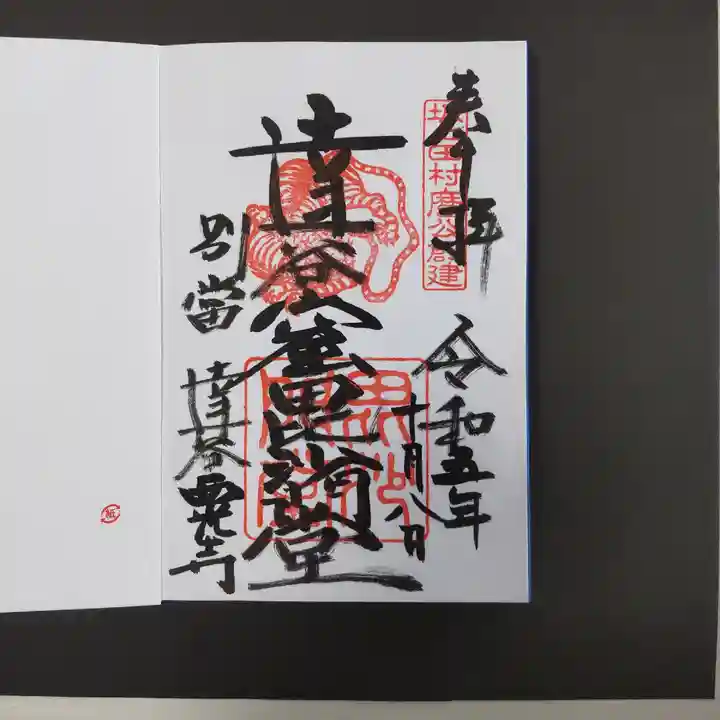 奉拝
坂上田村麿公創建
令和五年
十月八日
達谷窟毘沙門堂
別當
達谷西光寺